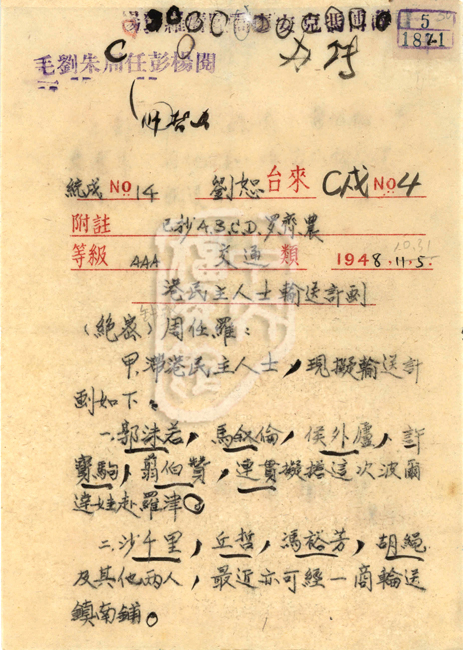 5
1871
C
毛劉朱周任彭楊閱
統戌 No 14 劉恕台來 C戌 No 4
附註 已抄A.B.C.D.罗齊農
等級 AAA 交通類 1948.11.5.
10.31
港民主人士輸送計劃
(絶密)周任羅:
甲、滯港民主人士,現擬輸送計
劃如下。
一、郭沫若,馬叙倫,侯外廬,許
寶駒,翦伯贊,連貫擬搭這次波爾
達娃赴羅津。
二、沙千里,丘哲,馮裕芳,胡繩
及其他兩人,最近亦可經一商輪送
鎮南鋪。